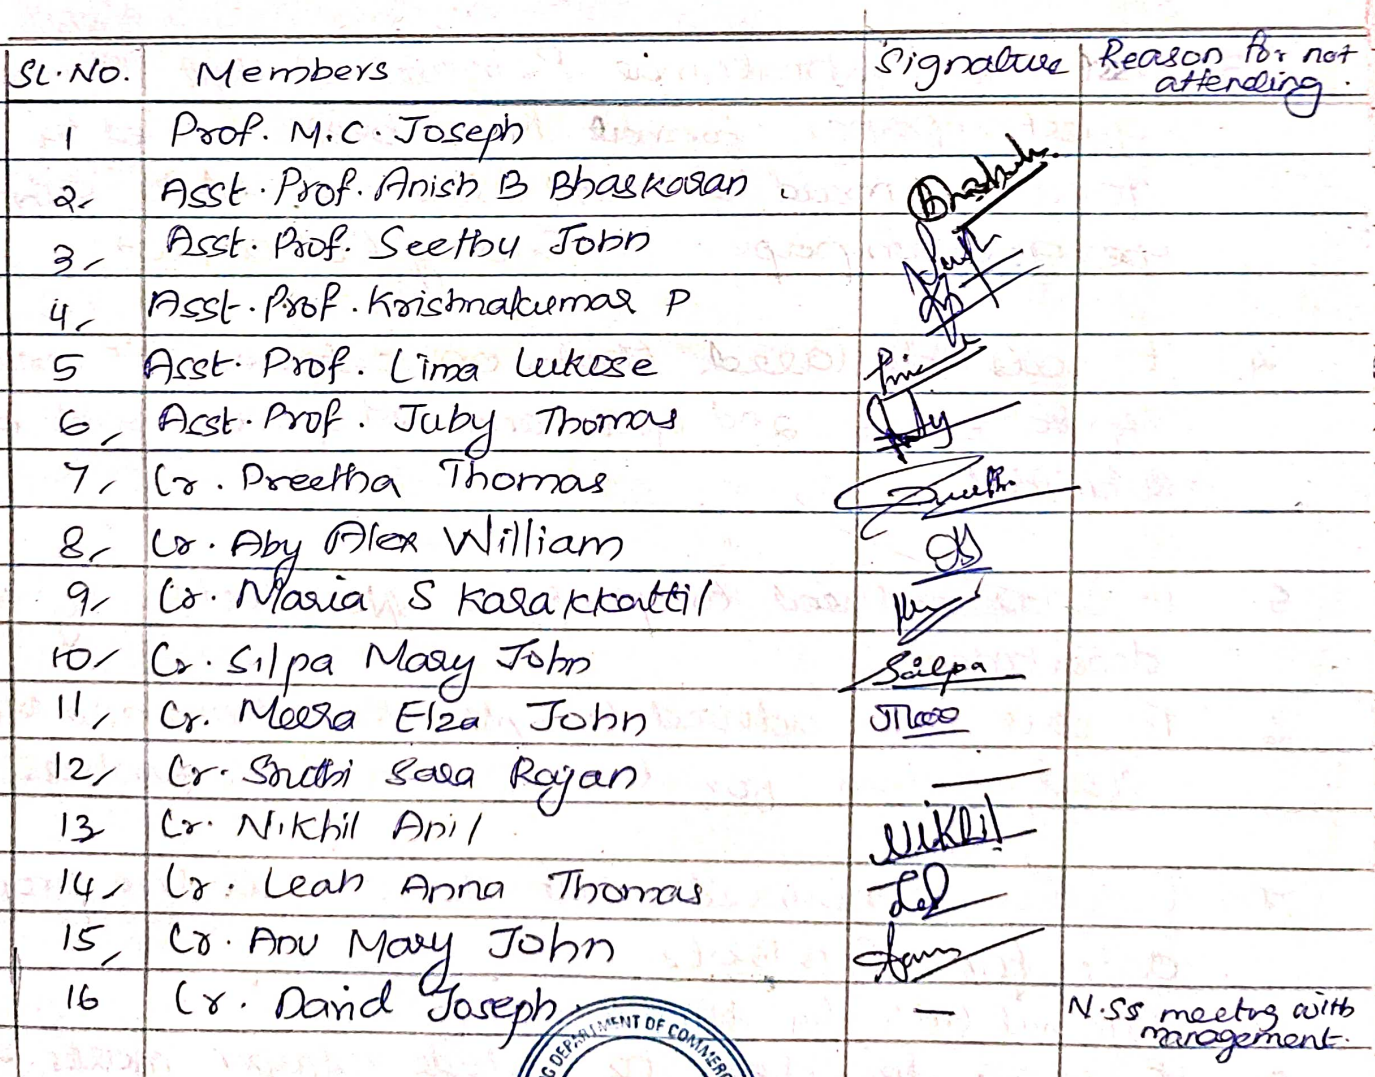 SL.NO. Members Signature Reason for not attending.
1 Prof. M.C. Joseph
2, Asst. Prof. Anish B Bhaskaran
3, Asst. Prof. Seethu John
4, Asst. Prof. Krishnakumar P
5 Asst. Prof. Lima Lukose
6, Asst. Prof. Juby Thomas Juby
7, Cr. Preetha Thomas Preetha
8, Cr. Aby Alex William
9, Cr. Maria S Karakkattil
10, Cr. Silpa Mary John Silpa
11, Cr. Meera Elza John
12, Cr. Sruthi Sara Rajan —
13 Cr. Nikhil Anil Nikhil
14, Cr. Leah Anna Thomas
15, Cr. Anu Mary John
16 Cr. David Joseph — N.SS meeting with management.
DEPARTMENT OF COMMERC